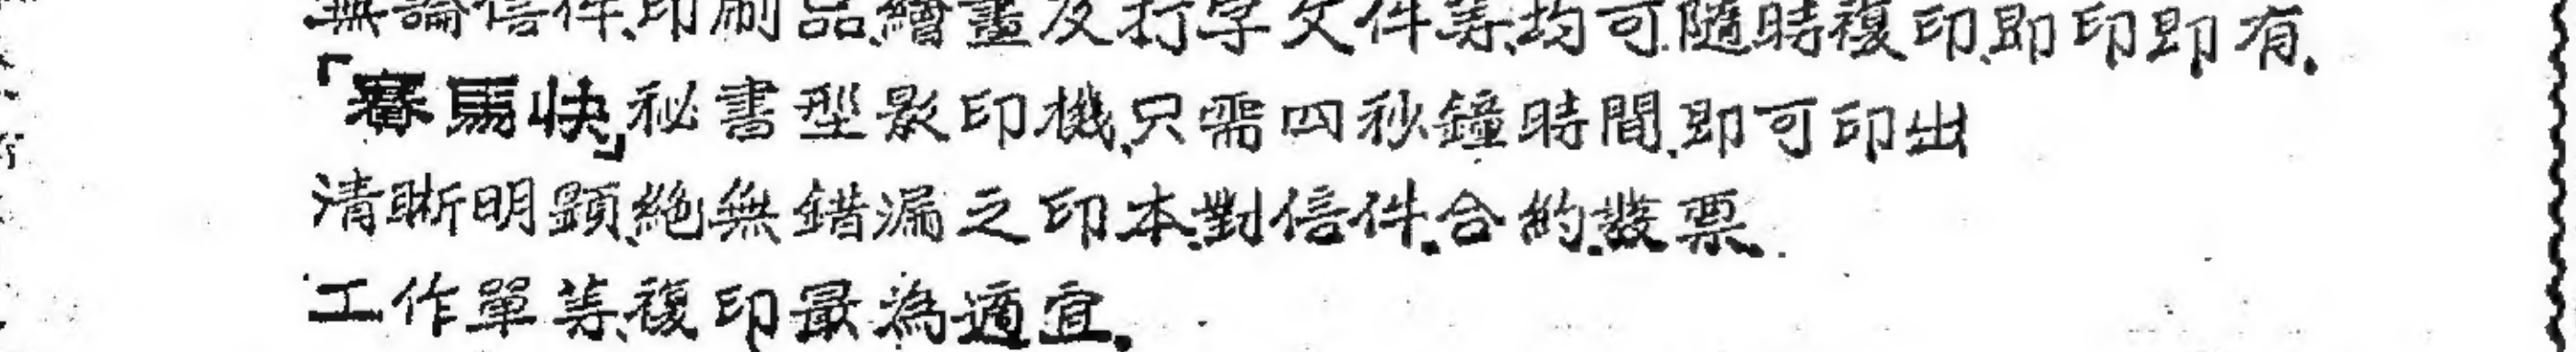 無論信件、印刷品、繪畫及打字文件等、均可隨時複印、即印即有.
「賽馬快」秘書型影印機、只需四秒鐘時間、即可印出
清晰明顕、絶無錯漏之印本、對信件、合約、發票、
工作單等、複印最為適宜.